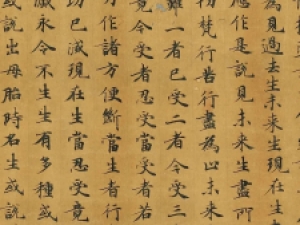 為見過去生未來生現在生
應作是說見未來生盡所
初梵行苦行盡為以未來
一者已受二者今受三
竟今受者忍受當受者若
方作諸方便斷當生者行
功已滅現在生當忍受竟
滅永令不生生有多種或
或說出母胎時名生或說